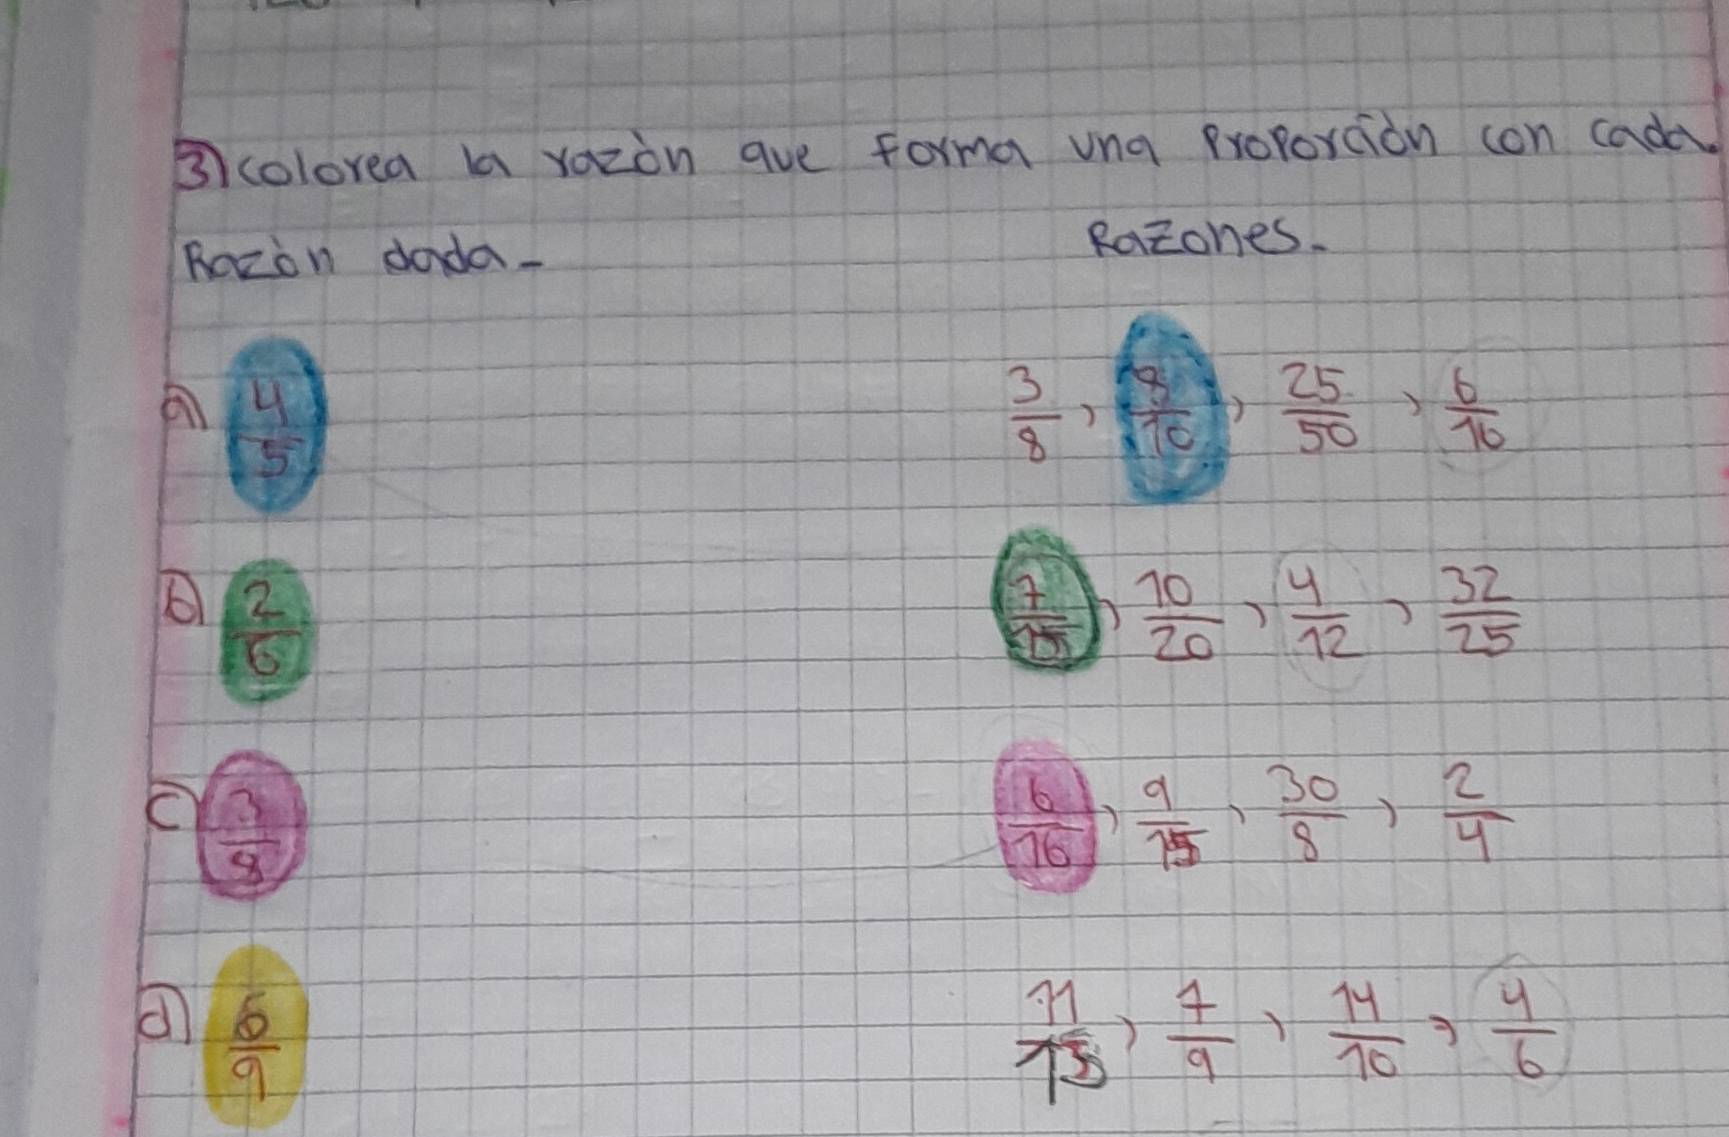 3) colorea la razòn que forma una Proporción con cada
Razòn dada- Razones.
a) 4/5 3/8, 8/10, 25/50, 6/16
b) 2/6 7/15, 10/20, 4/12, 32/25
c) 3/8 6/16, 9/15, 30/8, 2/4
d) 6/9 11/13, 7/9, 14/10, 4/6